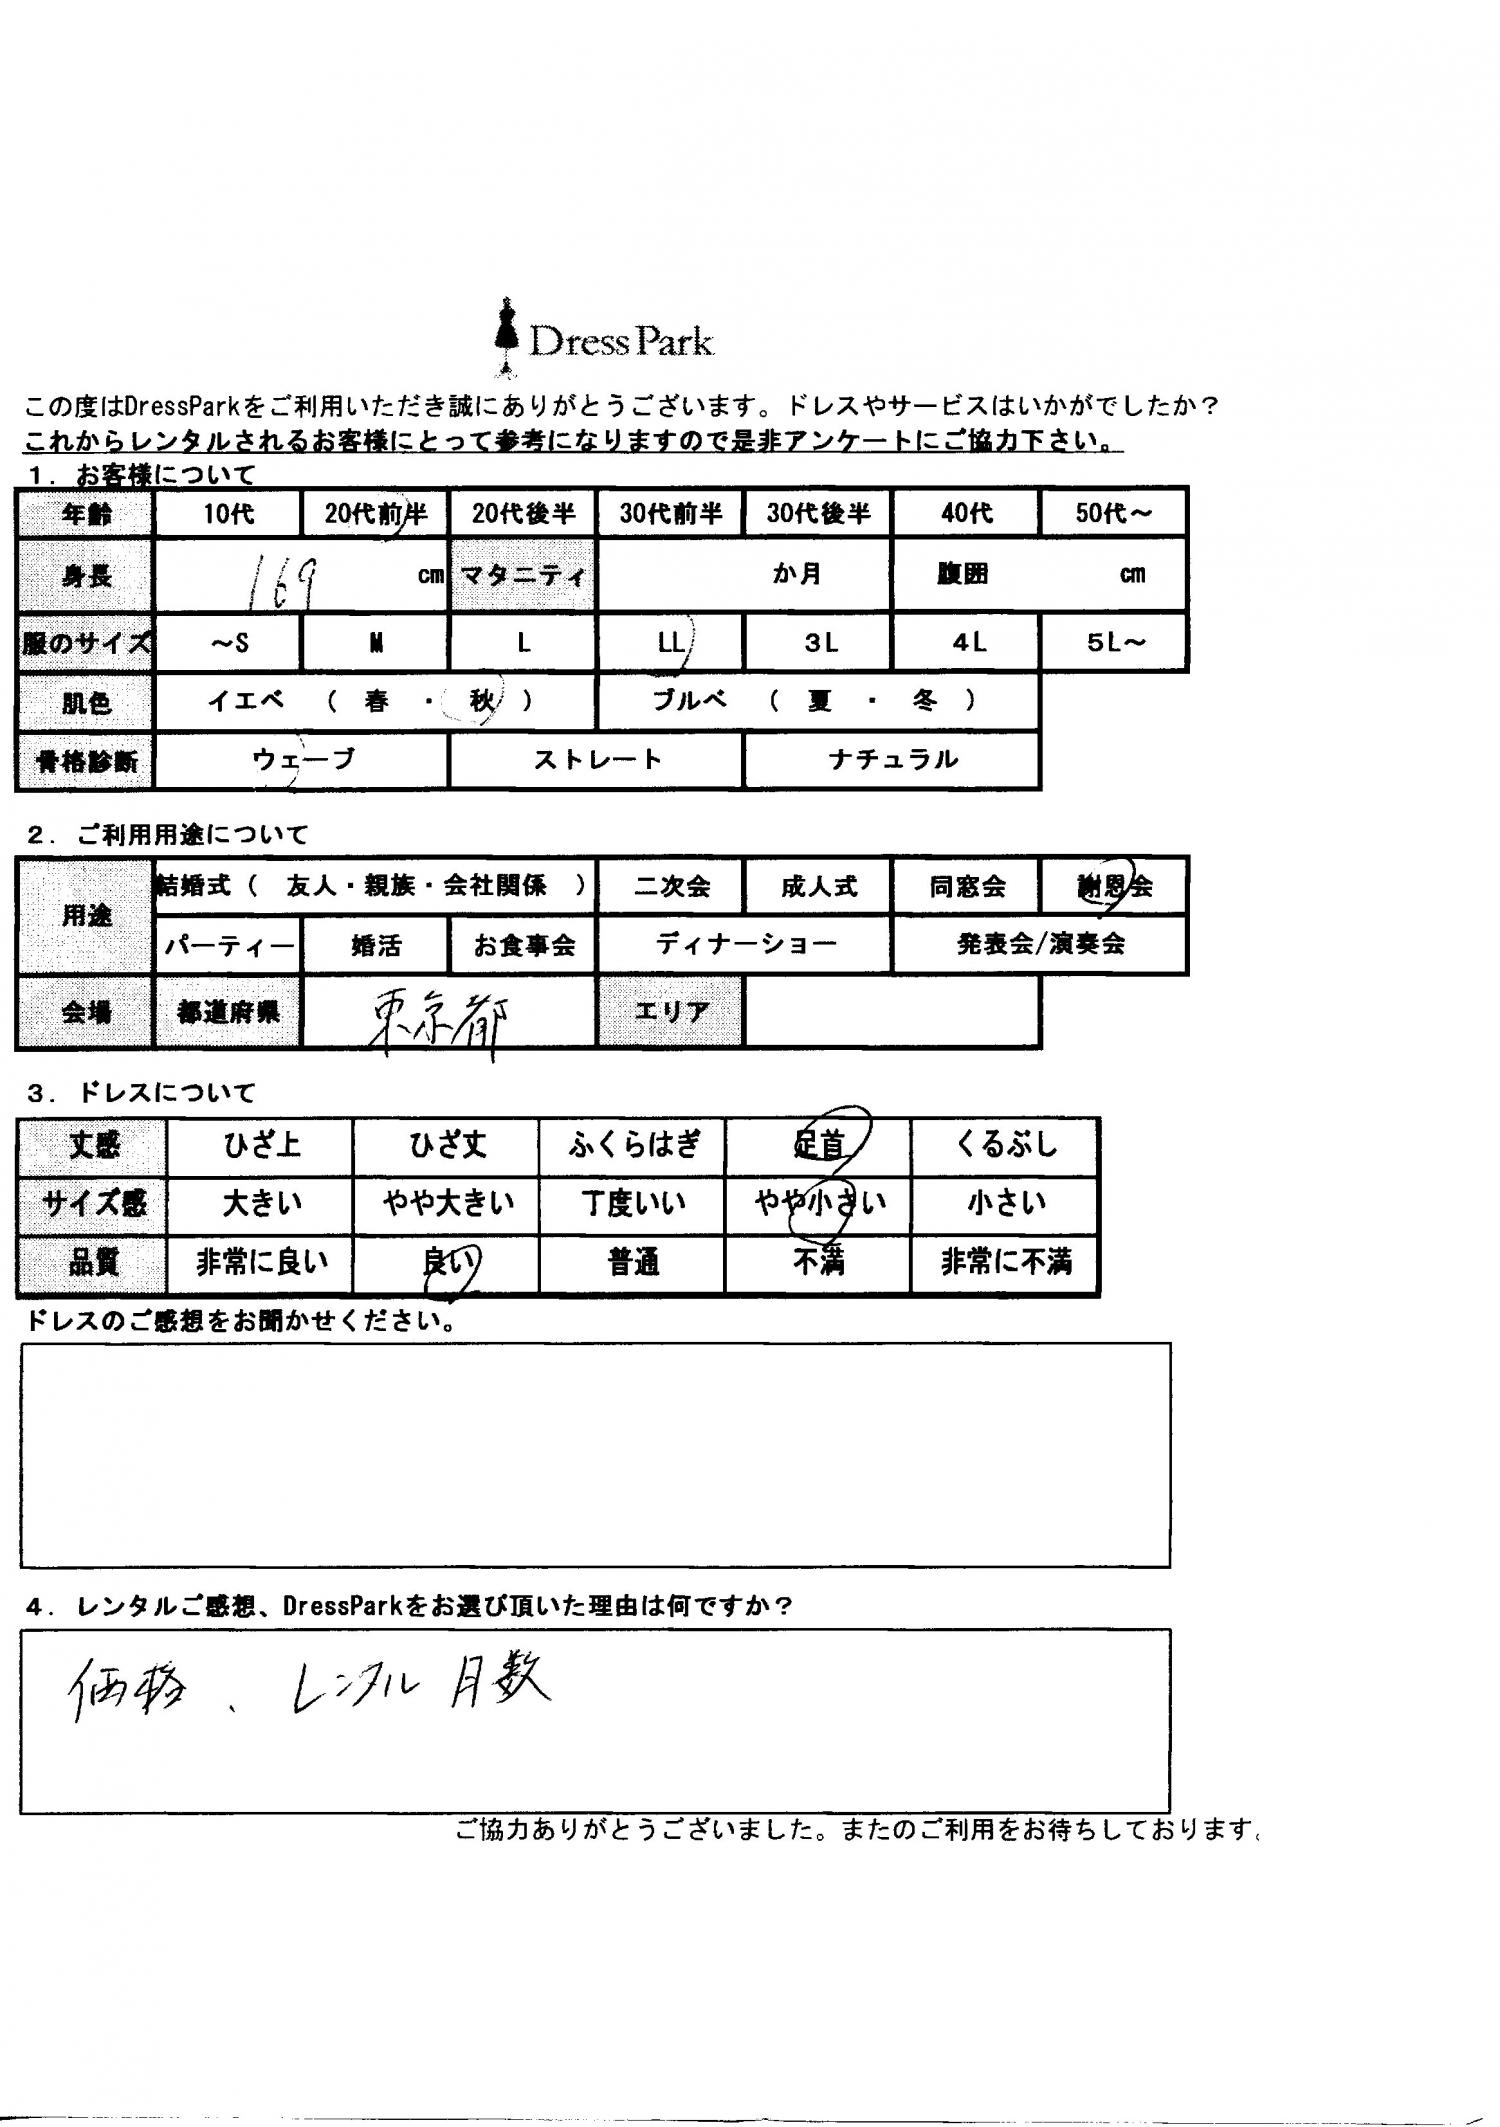 DressPark
この度はDressParkをご利用いただき誠にありがとうございます。ドレスやサービスはいかがでしたか？
これからレンタルされるお客様にとって参考になりますので是非アンケートにご協力下さい。
１．お客様について
年齢 10代 20代前半 20代後半 30代前半 30代後半 40代 50代～
身長 169 cm マタニティ か月 腹囲 cm
服のサイズ ～S M L LL 3L 4L 5L～
肌色 イエベ （ 春 ・ 秋 ） ブルベ （ 夏 ・ 冬 ）
骨格診断 ウェーブ ストレート ナチュラル
２．ご利用用途について
用途 結婚式（ 友人・親族・会社関係 ） 二次会 成人式 同窓会 謝恩会
パーティー 婚活 お食事会 ディナーショー 発表会/演奏会
会場 都道府県 東京都 エリア
３．ドレスについて
丈感 ひざ上 ひざ丈 ふくらはぎ 足首 くるぶし
サイズ感 大きい やや大きい 丁度いい やや小さい 小さい
品質 非常に良い 良い 普通 不満 非常に不満
ドレスのご感想をお聞かせください。
４．レンタルご感想、DressParkをお選び頂いた理由は何ですか？
価格、レンタル月数
ご協力ありがとうございました。またのご利用をお待ちしております。